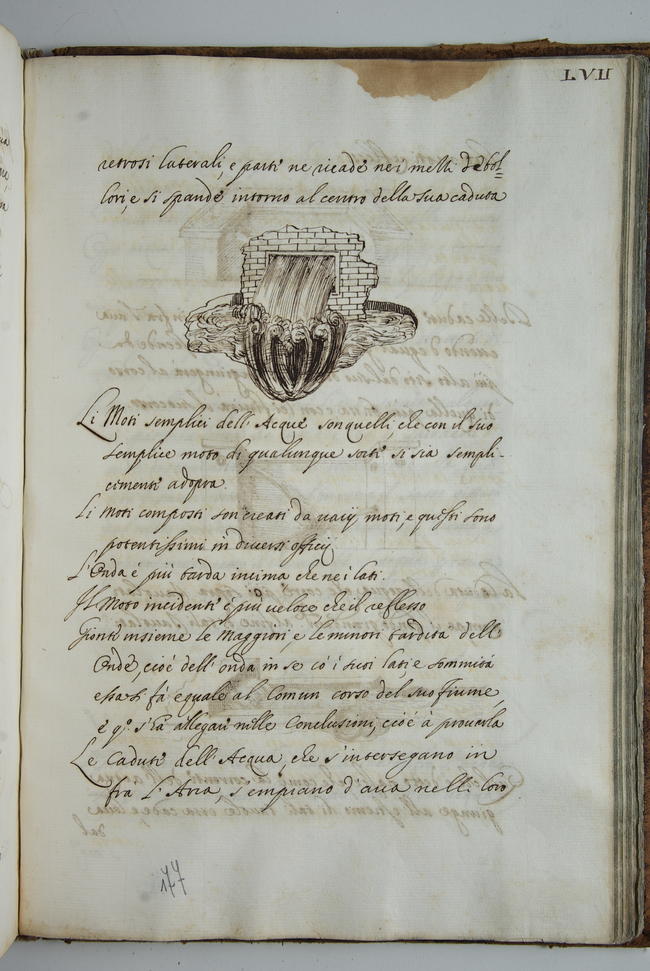 LVII
retrosi laterali, e parte ne ricade nei melli de bol=
lori, e si spande intorno al centro della sua caduta
Li Moti semplici dell' Acque son quelli, che con il suo
semplice moto di qualunque sorte si sia sempli-
cimente adopra.
Li Moti composti son creati da varij moti, e questi sono
potentissimi in diversi officij
L'Onda è più tarda in cima che nei lati.
Il Moto incidente è più veloce che il reflesso
Gionte insieme le Maggiori, e le minori tardità dell'
Onde, cioè dell'onda in se có i suoi lati, e sommità
fà eguale al Comun corso del suo fiume,
e q.o s'hà allegare nelle Conclusioni, cioè à provarla
Le Cadute dell'Acqua, che s'intersegano in
frà L'Aria, s'empiano d'aria nelli loro
177